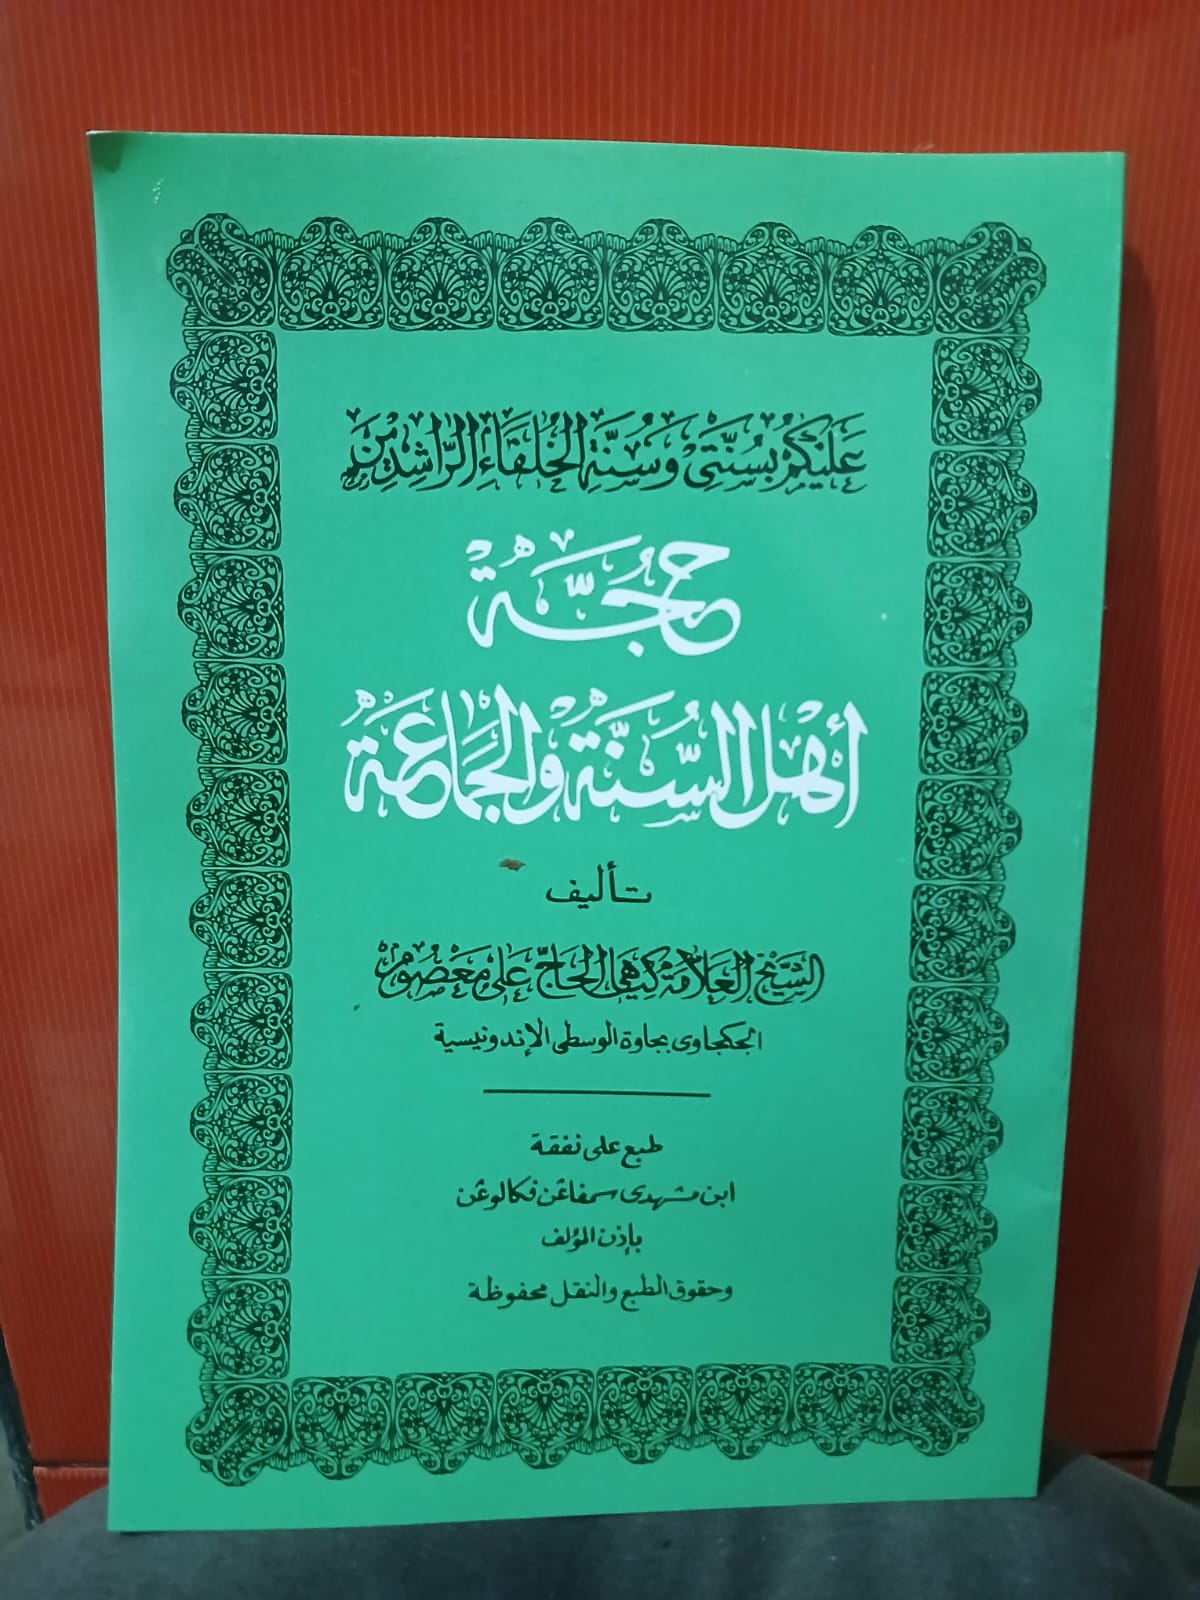 عَلَيْكُمْ بِسُنَّتِيْ وَسُنَّةِ الْخُلَفَاءِ الرَّاشِدِيْنَ
حُجَّةُ
أَهْلِ السُّنَّةِ وَالْجَمَاعَةِ
تأليف
الشيخ العلامة كياهى الحاج على معصوم
الجكجاوى بجاوة الوسطى الإندونيسية
طبع على نفقة
ابن مشهدى سمفاڠن فكالوڠن
بإذن المؤلف
وحقوق الطبع والنقل محفوظة